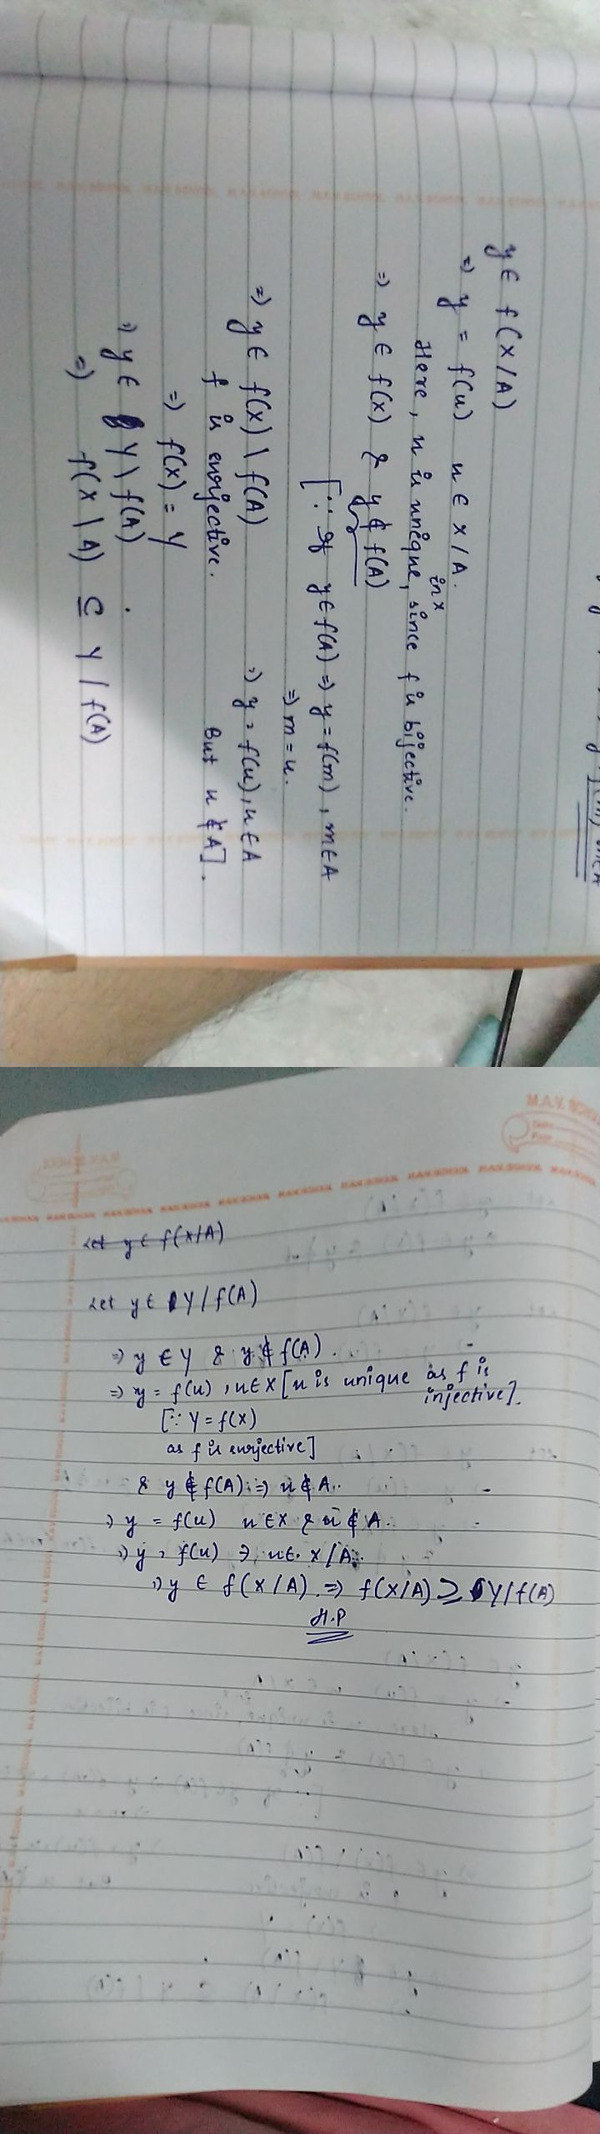 y ∈ f(X/A)
⇒ y = f(u) u ∈ X/A.
Here, u is unique, in X since f is bijective.
⇒ y ∈ f(X) & y ∉ f(A)
[∵ If y ∈ f(A) ⇒ y = f(m), m ∈ A
⇒ m = u.
⇒ y = f(u), u ∈ A
But u ∉ A].
⇒ y ∈ f(X) \ f(A)
f is surjective.
⇒ f(X) = Y
⇒ y ∈ Y \ f(A)
⇒ f(X \ A) ⊆ Y / f(A)
M.A.V.
Date
Page
Let y ∈ f(X/A)
Let y ∈ Y / f(A)
⇒ y ∈ Y & y ∉ f(A).
⇒ y = f(u), u ∈ X [u is unique as f is
injective].
[∵ Y = f(X)
as f is surjective]
& y ∉ f(A) ⇒ u ∉ A.
⇒ y = f(u) u ∈ X & u ∉ A.
⇒ y = f(u) ∋ u ∈ X/A.
⇒ y ∈ f(X/A) ⇒ f(X/A) ⊇ Y/f(A)
H.P